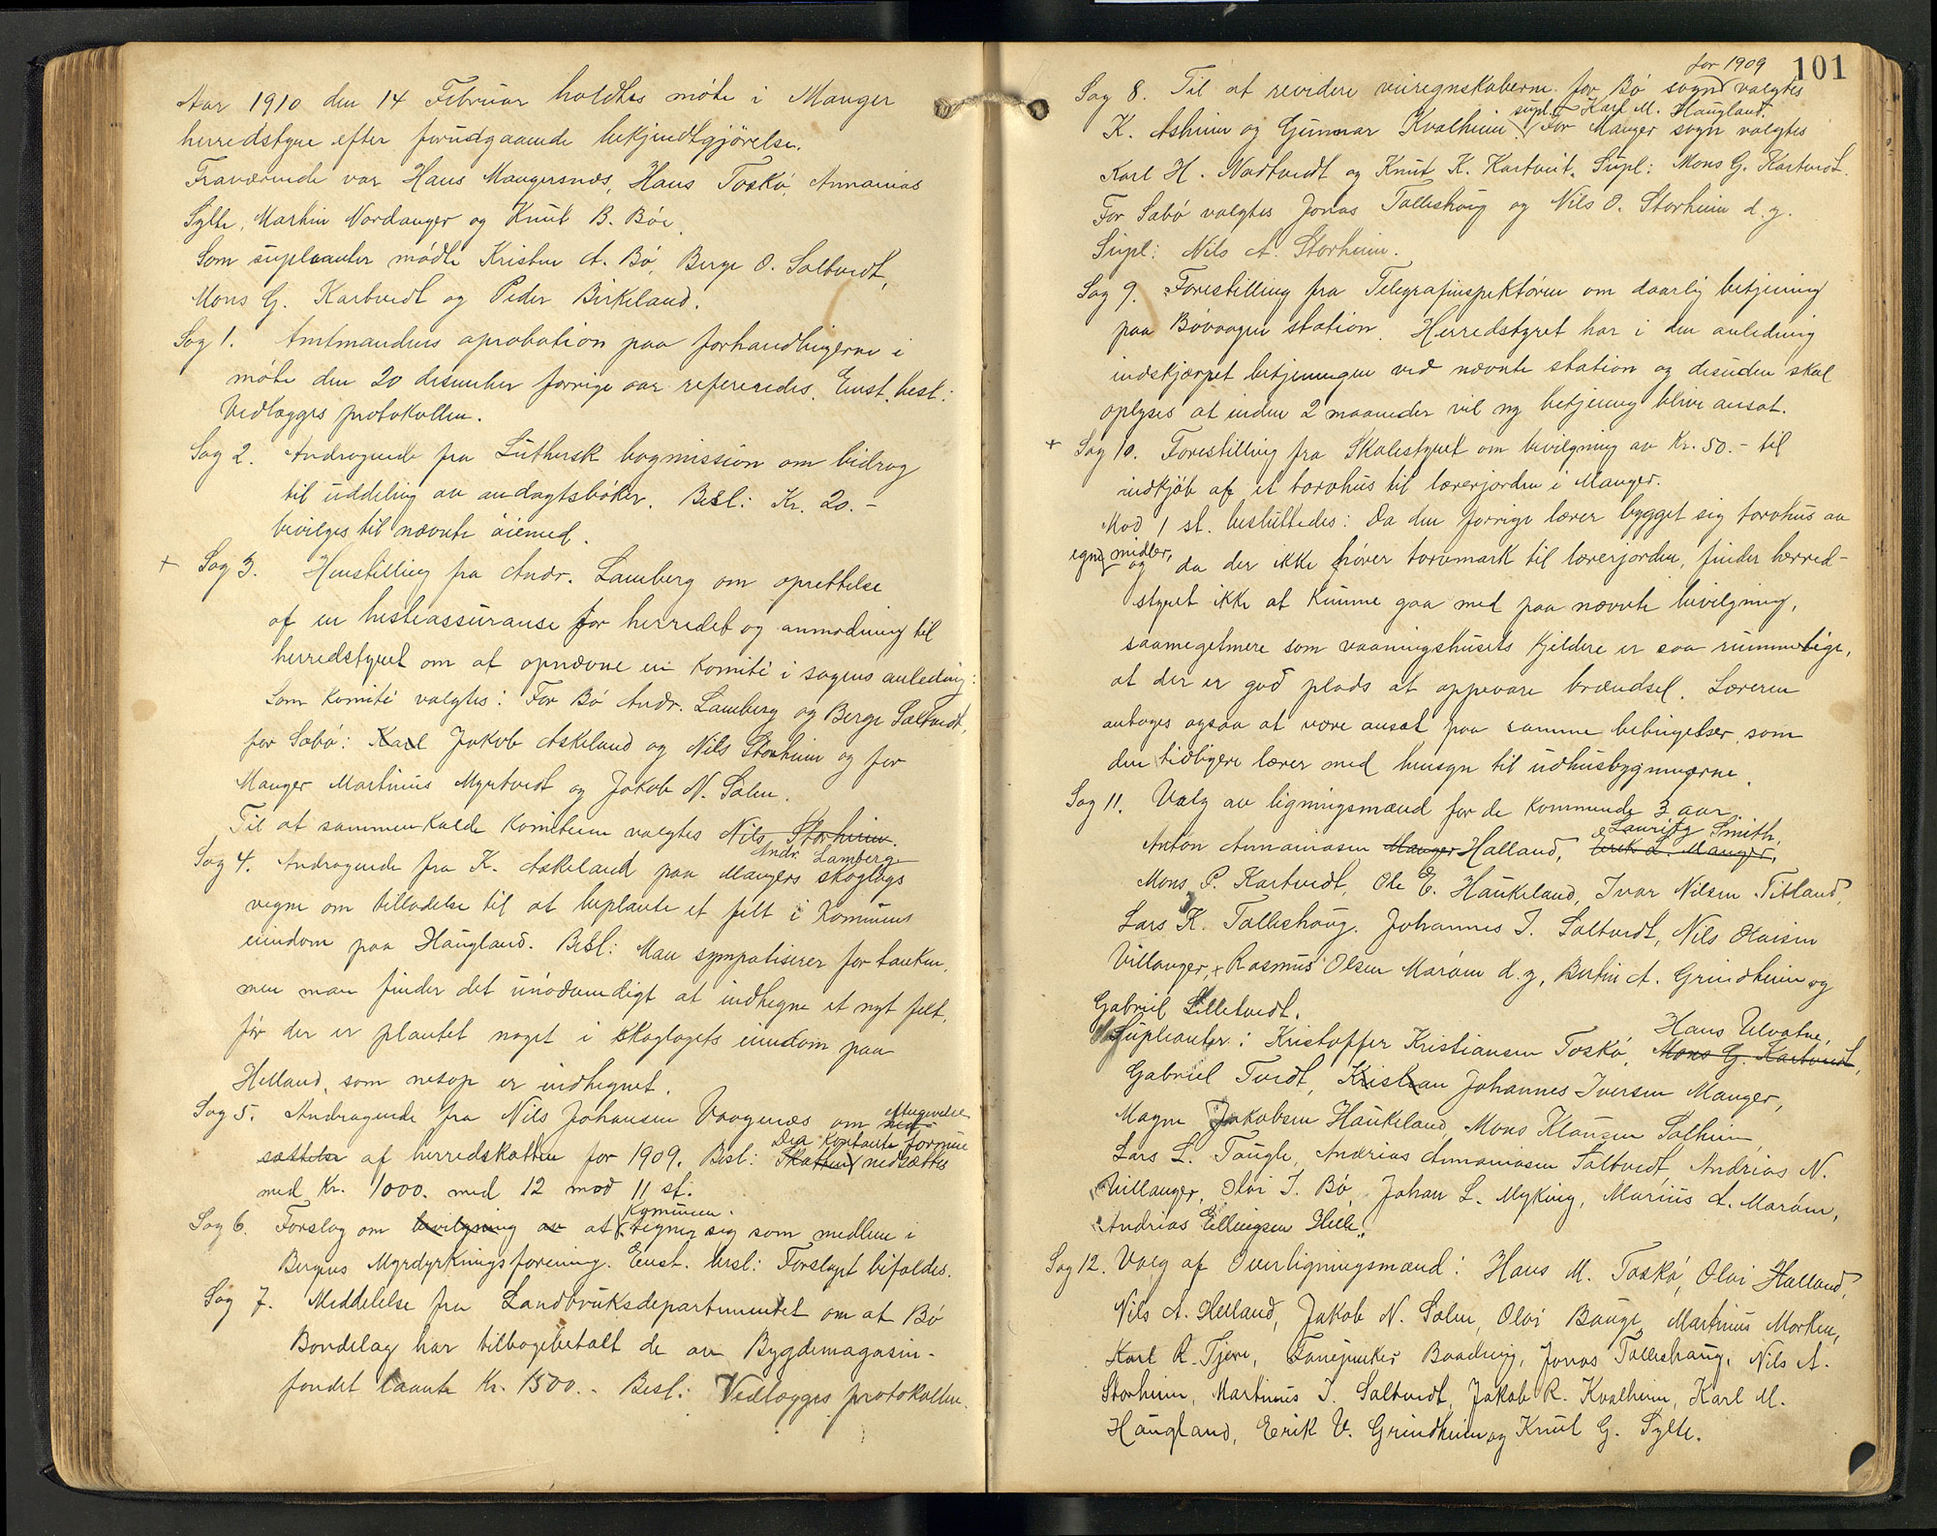 Aar 1910 den 14 Februar holdtes møte i Manger
herredstyre efter forudgaaende bekjendtgjörelse.
Fraværende var Hans Mangersnes, Hans Toskö, Annanias
Sylte, Martin Nordanger og Knut B. Böe.
Som supleanter mödte Kristen A. Bö, Berge O. Saltvedt,
Mons G. Kartvedt og Peder Birkeland.
Sag 1. Amtmandens aprobation paa forhandlingerne i
møte den 20 desember forrige aar refereredes. Enst. besl:
Vedlægges protokollen.
Sag 2. Andragende fra Luthersk bogmission om bidrag
til uddeling av andagtsböker. Besl: Kr. 20.-
bevilges til nævnte öiemed.
+ Sag 3. Henstilling fra Andr. Lamberg om oprettelse
af en hesteassuranse for herredet og anmodning til
herredstyret om at opnævne en komité i sagens anledning:
Som komité valgtes: For Bö Andr. Lamberg og Berge Saltvedt,
for Sæbö: Karl Jakob Askeland og Nils Storheim og for
Manger Martinus Myrtvedt og Jakob N. Solem.
Til at sammenkalde komiteen valgtes Nils Storheim.
Andr. Lamberg
Sag 4. Andragende fra K. Askeland paa Mangers skoglags
vegne om tilladelse til at beplante et felt i kommunens
eiendom paa Haugland. Besl: Man sympatiserer for tanken,
men man finder det unödvendigt at indhegne et nyt felt,
för der er plantet noget i skoglagets eiendom paa
Helland, som netop er indhegnet.
Sag 5. Andragende fra Nils Johansen Vaagenes om ned-
eftergivelse
sættelse af herredskatten for 1909. Besl: Skatten nedsættes
Den konfante formue
med Kr. 1000. med 12 mod 11 st.
Kommunen.
Sag 6. Forslag om bevilgning av at tegner sig som medlem i
Bergens Myrdyrkningsforening. Enst. besl: Forslaget bifaldes.
Sag 7. Meddelelse fra Landbruksdepartementet om at Bö
Bondelag har tilbagebetalt de av Bygdemagasin-
fondet laante Kr. 1500.- Besl: Vedlægges protokollen.
for 1909 101
Sag 8. Til at revidere veiregnskaberne for Bö sogn valgtes
supl. Karl M. Haugland.
K. Asheim og Gunnar Kvalheim. For Manger sogn valgtes
Karl H. Nødtvedt og Knut K. Kartveit. Supl: Mons G. Kartvedt.
For Sæbö valgtes Jonas Talleshaug og Nils O. Storheim d.y.
Supl: Nils A. Storheim.
Sag 9. Forestilling fra Telegrafinspektören om daarlig betjening
paa Bövaagen station. Herredstyret har i den anledning
indskjærpet betjeningen ved nævnte station og desuden skal
oplyses at inden 2 maaneder vil ny betjening blive ansat.
+ Sag 10. Forestilling fra Skolestyret om bevilgning av Kr. 50.- til
indkjöb af et torvhus til lærerjorden i Manger.
Mod 1 st. besluttedes: Da den forrige lærer bygget sig torvhus av
egne midler, og da der ikke hörer torvmark til lærerjorden, finder herred-
styret ikke at kunne gaa med paa nævnte bevilgning,
saameget mere som vaaningshusets kjeldere er saa rummelige,
at der er god plads at oppevare brændsel. Læreren
antages ogsaa at være ansat paa samme betingelser som
den tidligere lærer med hensyn til udhusbygningerne.
Sag 11. Valg av ligningsmænd for de kommende 3 aar.
Lauritz Smith,
Anton Annaniasen Manger Halland, Erik L. Manger,
Mons P. Kartvedt, Ole E. Haukeland, Ivar Nilsen Titland,
Lars K. Talleshaug. Johannes I. Saltvedt, Nils Olaisen
Villanger, + Rasmus Olsen Maröen d.y, Bertin A. Grindheim og
Gabriel Lilletvedt.
Hans Ulvatne,
Supleanter: Kristoffer Kristiansen Toskö, Mons G. Kartvedt,
Gabriel Tvedt, Kristian Johannes Iversen Manger,
Magne Jakobsen Haukeland Mons Klausen Solheim,
Lars L. Taugle, Andreas Annaniasen Saltvedt, Andreas N.
Villanger, Olai T. Bö, Johan L. Myking, Marius A. Maröen,
Andreas Ellingsen Hille.
Sag 12. Valg af Overligningsmænd: Hans M. Toskö, Olai Halland,
Nils A. Helland, Jakob N. Solem, Olai Bauge, Martinus Morken,
Karl R. Tjore, Fanejunker Baadeng, Jonas Talleshaug, Nils A.
Storheim, Martinus I. Saltvedt, Jakob R. Kvalheim, Karl M.
Haugland, Erik V. Grindheim og Knut G. Sylte.